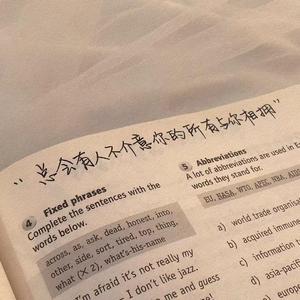 “总会有人不介意你的所有与你相拥”
4 Fixed phrases
Complete the sentences with the
words below.
across, as, ask, dead, honest, into,
other, side, sort, tired, top, thing,
what (X 2), what's-his-name
I'm afraid it's not really my
I don't like jazz.
me and guess
5 Abbreviations
A lot of abbreviations are used in
words they stand for.
EU, NASA, WTO,
a) world trade organisa
b) acquired immun
c) informatio
d) asia-pacif
e) europ